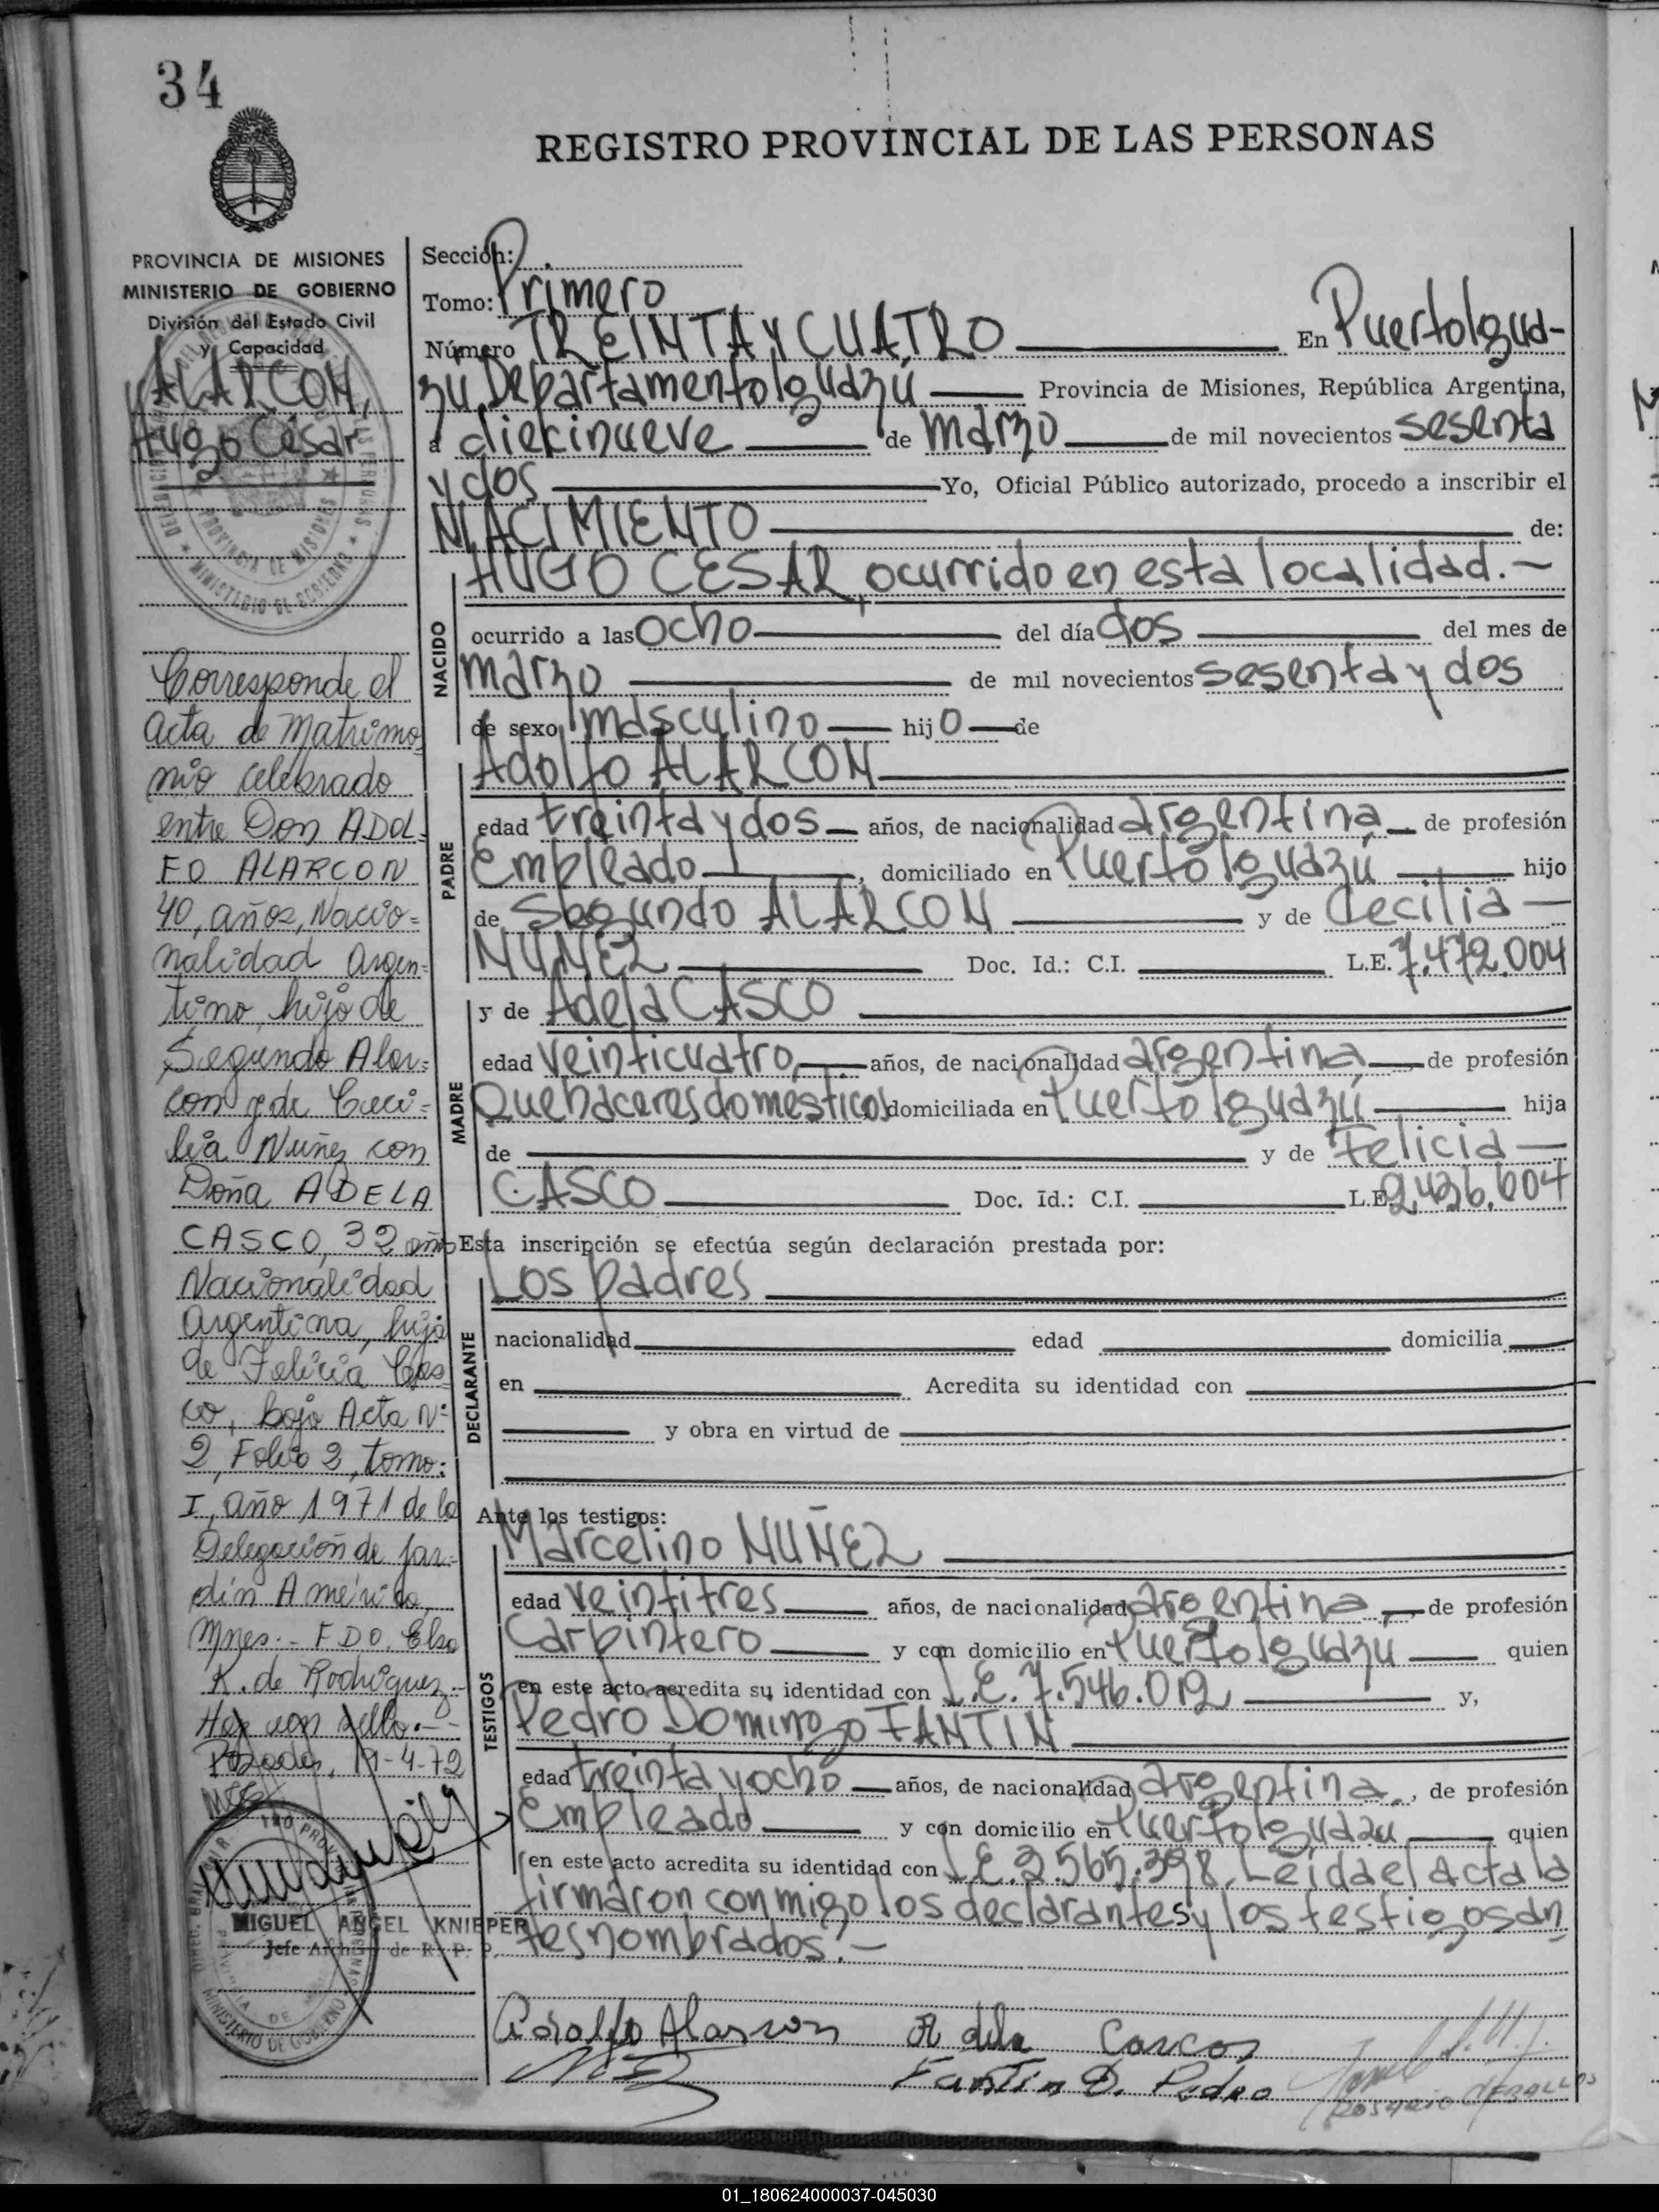 34
REGISTRO PROVINCIAL DE LAS PERSONAS
PROVINCIA DE MISIONES
MINISTERIO DE GOBIERNO
División del Estado Civil
y Capacidad
ALARCON,
Hugo César
Corresponde el
Acta de Matrimo
nio celebrado
entre Don ADOL=
FO ALARCON
40, años, Nacio=
nalidad Argen=
tino, hijo de
Segundo Alar=
con y de Ceci=
lia Nuñez con
Doña ADELA
CASCO, 32 años
Nacionalidad
Argentina, hija
de Felicia Cas
co, bajo Acta Nº
2, Folio 2, tomo:
I, año 1971 de la
Delegación de Jar=
dín América,
Mnes.- FDO. Elsa
K. de Rodriguez.-
Hay un sello.--
Posadas, 11-4-72
MIGUEL ANGEL KNIEPER
Jefe Archivo de R. P. P.
MINISTERIO DE GOBIERNO
Sección:
Tomo: Primero
Número TREINTA Y CUATRO En Puerto Igua-
zú Departamento Iguazú Provincia de Misiones, República Argentina,
a diecinueve de marzo de mil novecientos sesenta
y dos Yo, Oficial Público autorizado, procedo a inscribir el
NACIMIENTO de:
NACIDO
HUGO CESAR, ocurrido en esta localidad.-
ocurrido a las ocho del día dos del mes de
marzo de mil novecientos sesenta y dos
de sexo masculino hijo de
PADRE
Adolfo ALARCON
edad treinta y dos años, de nacionalidad argentina de profesión
Empleado, domiciliado en Puerto Iguazú hijo
de Segundo ALARCON y de Cecilia
NUÑEZ Doc. Id.: C.I. L.E. 7.472.004
MADRE
y de Adela CASCO
edad veinticuatro, años, de nacionalidad argentina de profesión
Quehaceres domésticos domiciliada en Puerto Iguazú hija
de y de Felicia
CASCO Doc. Id.: C.I. L.E. 2.436.604
Esta inscripción se efectúa según declaración prestada por:
DECLARANTE
Los padres
nacionalidad edad domicilia
en Acredita su identidad con
y obra en virtud de
Ante los testigos:
TESTIGOS
Marcelino NUÑEZ
edad veintitres años, de nacionalidad argentina, de profesión
Carpintero y con domicilio en Puerto Iguazú quien
en este acto acredita su identidad con L.E. 7.546.012 y,
Pedro Domingo FANTIN
edad treinta y ocho años, de nacionalidad argentina, de profesión
Empleado y con domicilio en Puerto Iguazú quien
en este acto acredita su identidad con L.E. 2.565.398. Leida el acta la
firmaron conmigo los declarantes y los testigos an
tes nombrados.-
Adolfo Alarcon Adela Carcos
Fantin D. Pedro
01_180624000037-045030